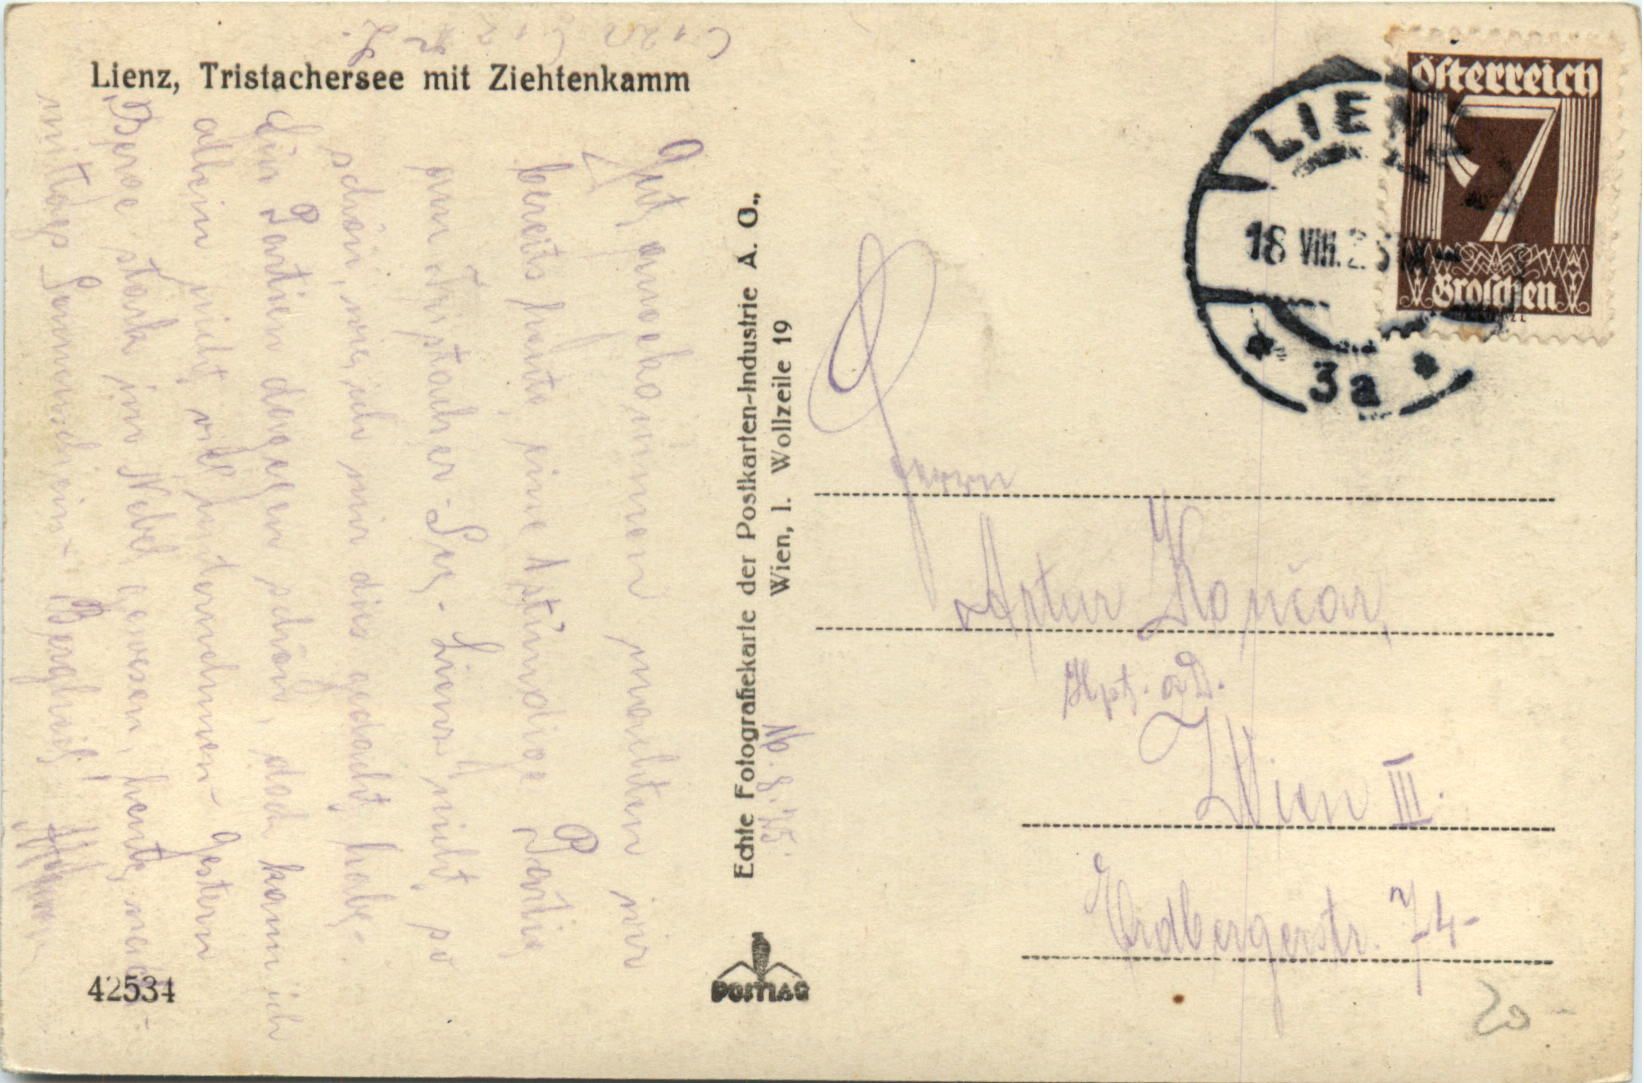 Lienz, Tristachersee mit Ziehtenkamm
Gut angekommen machten wir
bereits heute eine 1 stündige Partie
am Tristacher-See - Lienz nicht so
schön, wie ich mir dies gedacht habe -
Die Partien dagegen schön, doch kann ich
allein nicht viel unternehmen - Gestern
Berge stark im Nebel gewesen, heute nach-
mittags Sonnenschein - Bergheil!
Echte Fotografiekarte der Postkarten-Industrie A. G.,
Wien, I. Wollzeile 19
16. 8. 25.
österreich
7
Groschen
LIENZ
18 VIII. 25
* 3a *
Herrn
Artur Kopričar,
Hpt. a D.
Wien III.
Erdbergerstr. 74-
42534
POSTIAG
20 -